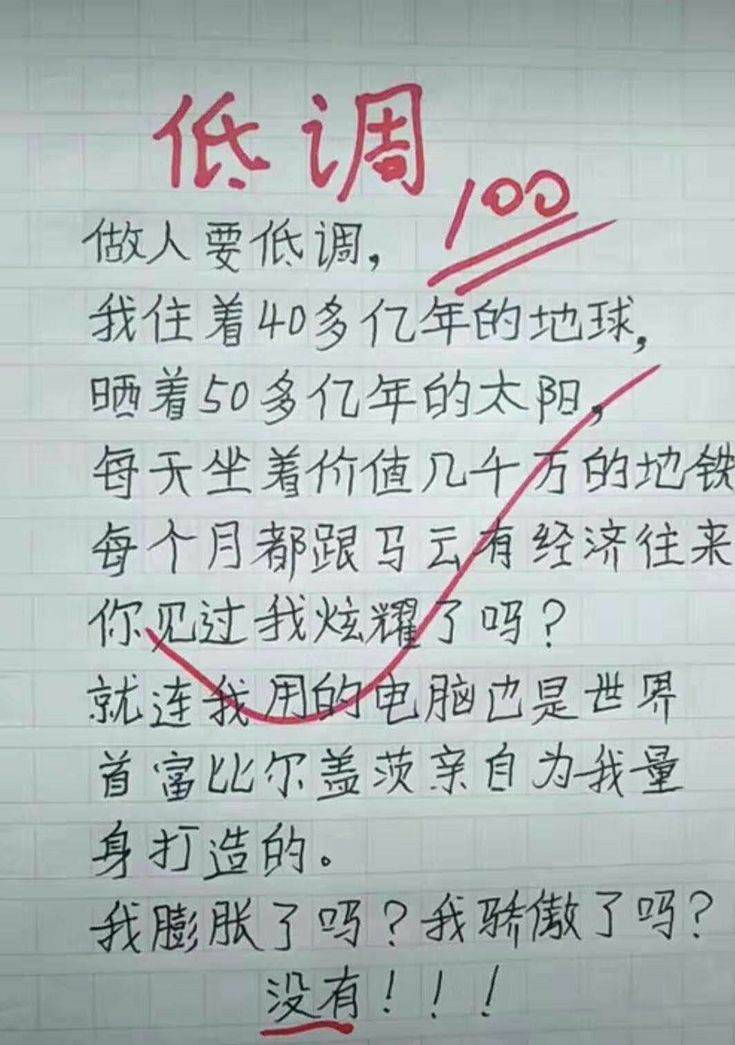 低调
100
做人要低调,
我住着40多亿年的地球,
晒着50多亿年的太阳,
每天坐着价值几千万的地铁
每个月都跟马云有经济往来
你见过我炫耀了吗?
就连我用的电脑也是世界
首富比尔盖茨亲自为我量
身打造的。
我膨胀了吗?我骄傲了吗?
没有!!!